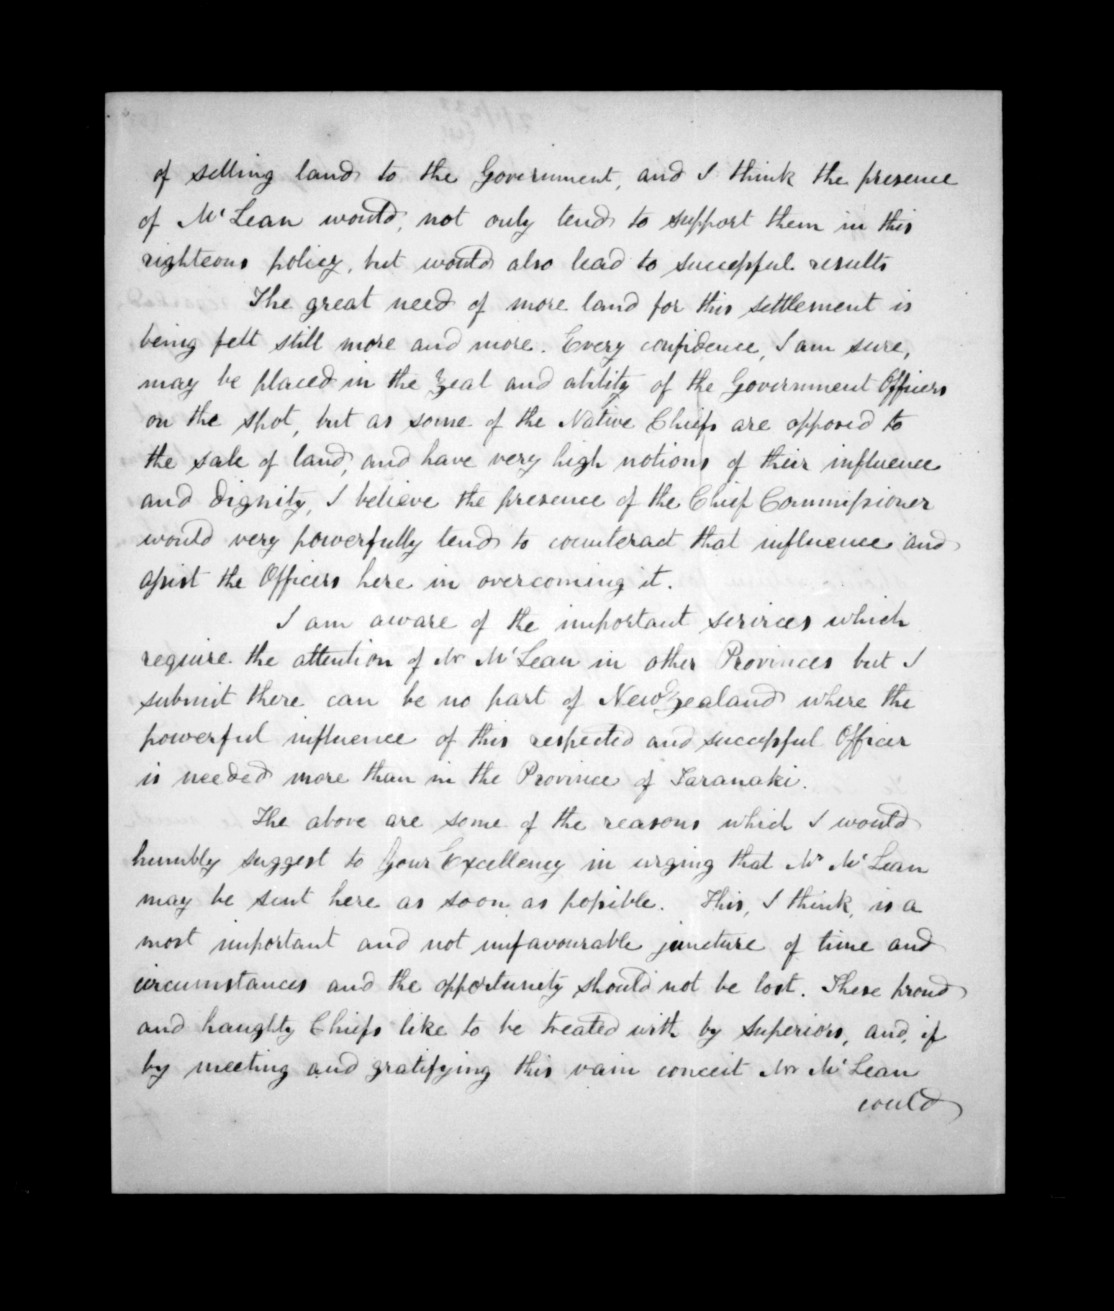 of selling land to the Government, and I think the presence
of McLean would, not only tend to support them in this
righteous policy, but would also lead to successful results
The great need of more land for this settlement is
being felt still more and more. Every confidence, I am sure,
may be placed in the zeal and ability of the Government Officers
on the spot, but as some of the Native Chiefs are opposed to
the sale of land, and have very high notions of their influence
and dignity, I believe the presence of the Chief Commissioner
would very powerfully tend to counteract that influence and
assist the Officers here in overcoming it.
I am aware of the important services which
require the attention of Mr McLean in other Provinces but I
submit there can be no part of New Zealand where the
powerful influence of this respected and successful Officer
is needed more than in the Province of Taranaki.
The above are some of the reasons which I would
humbly suggest to Your Excellency in urging that Mr McLean
may be sent here as soon as possible. This, I think, is a
most important and not unfavourable juncture of time and
circumstances and the opportunity should not be lost. These proud
and haughty Chiefs like to be treated with by superiors, and, if
by meeting and gratifying this vain conceit Mr McLean
could